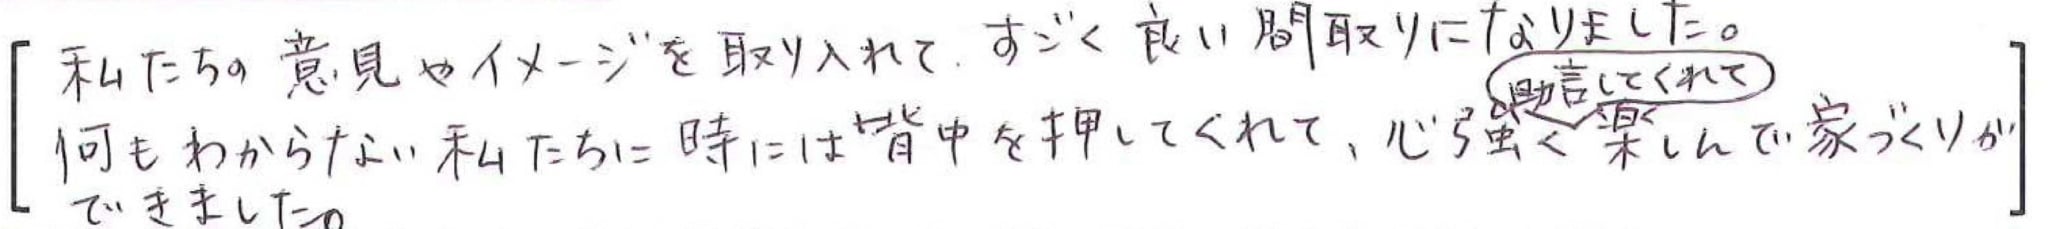 私たちの意見やイメージを取り入れて、すごく良い間取りになりました。
助言してくれて
何もわからない私たちに時には背中を押してくれて、心強く楽しんで家づくりが
できました。